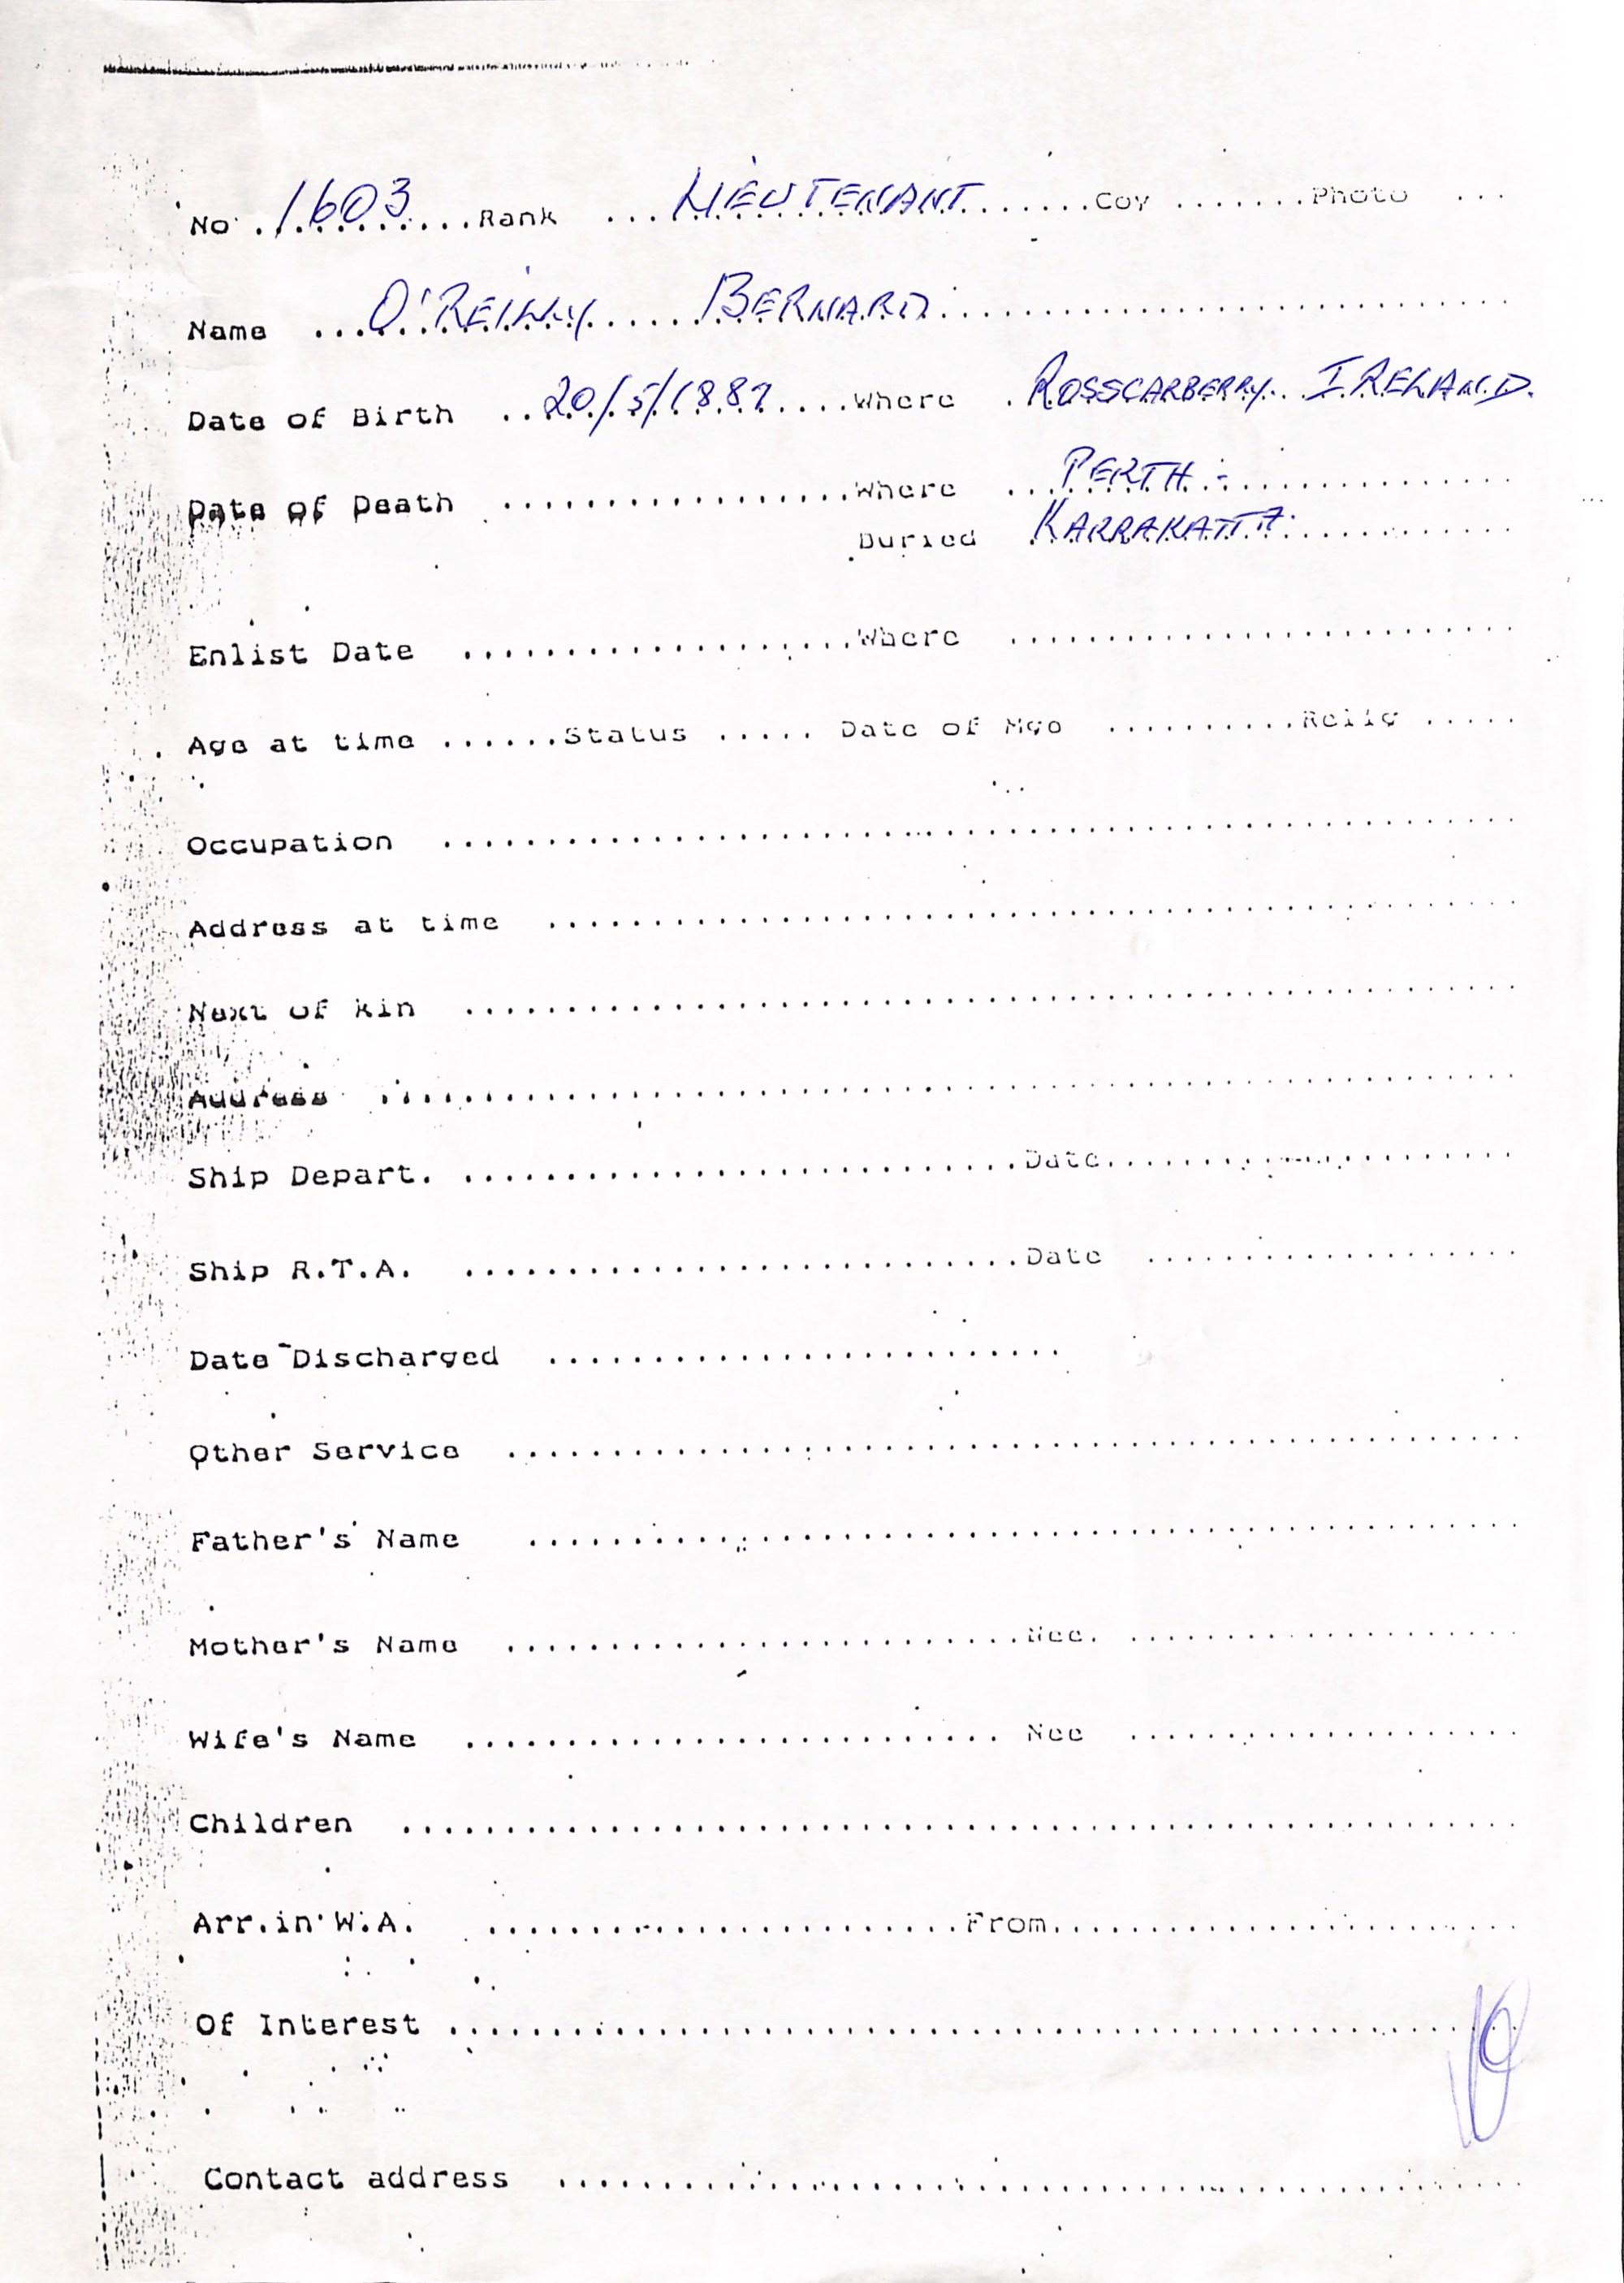 No 1603 Rank LIEUTENANT Coy Photo
Name O'REILLY BERNARD
Date of Birth 20/5/1887 Where ROSSCARBERRY IRELAND.
Date of Death Where PERTH
Buried KARRAKATTA
Enlist Date Where
Age at time Status Date of Mge Relig
Occupation
Address at time
Next of kin
Address
Ship Depart. Date
Ship R.T.A. Date
Date Discharged
Other Service
Father's Name
Mother's Name Nee.
Wife's Name Nee
Children
Arr.in W.A. From
Of Interest
Contact address